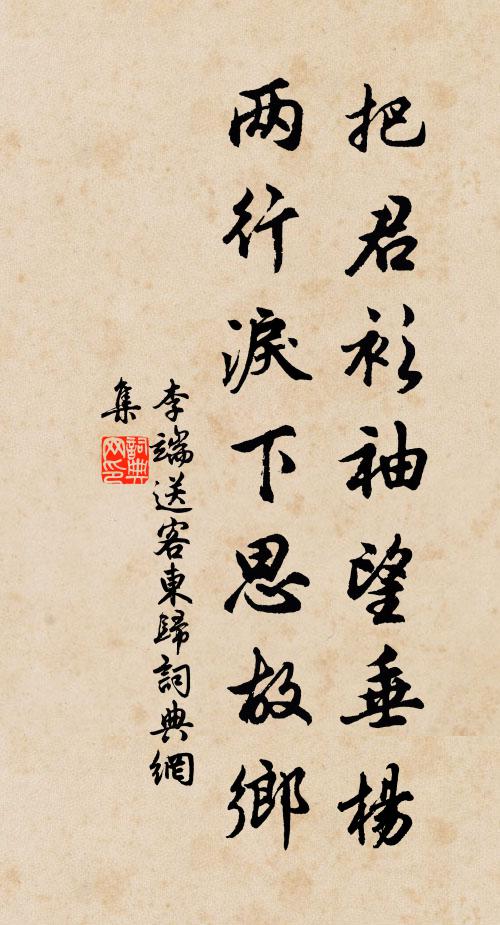 把君衫袖望垂楊
两行淚下思故鄉
李端送客東歸詞典網
集
詞典
网印